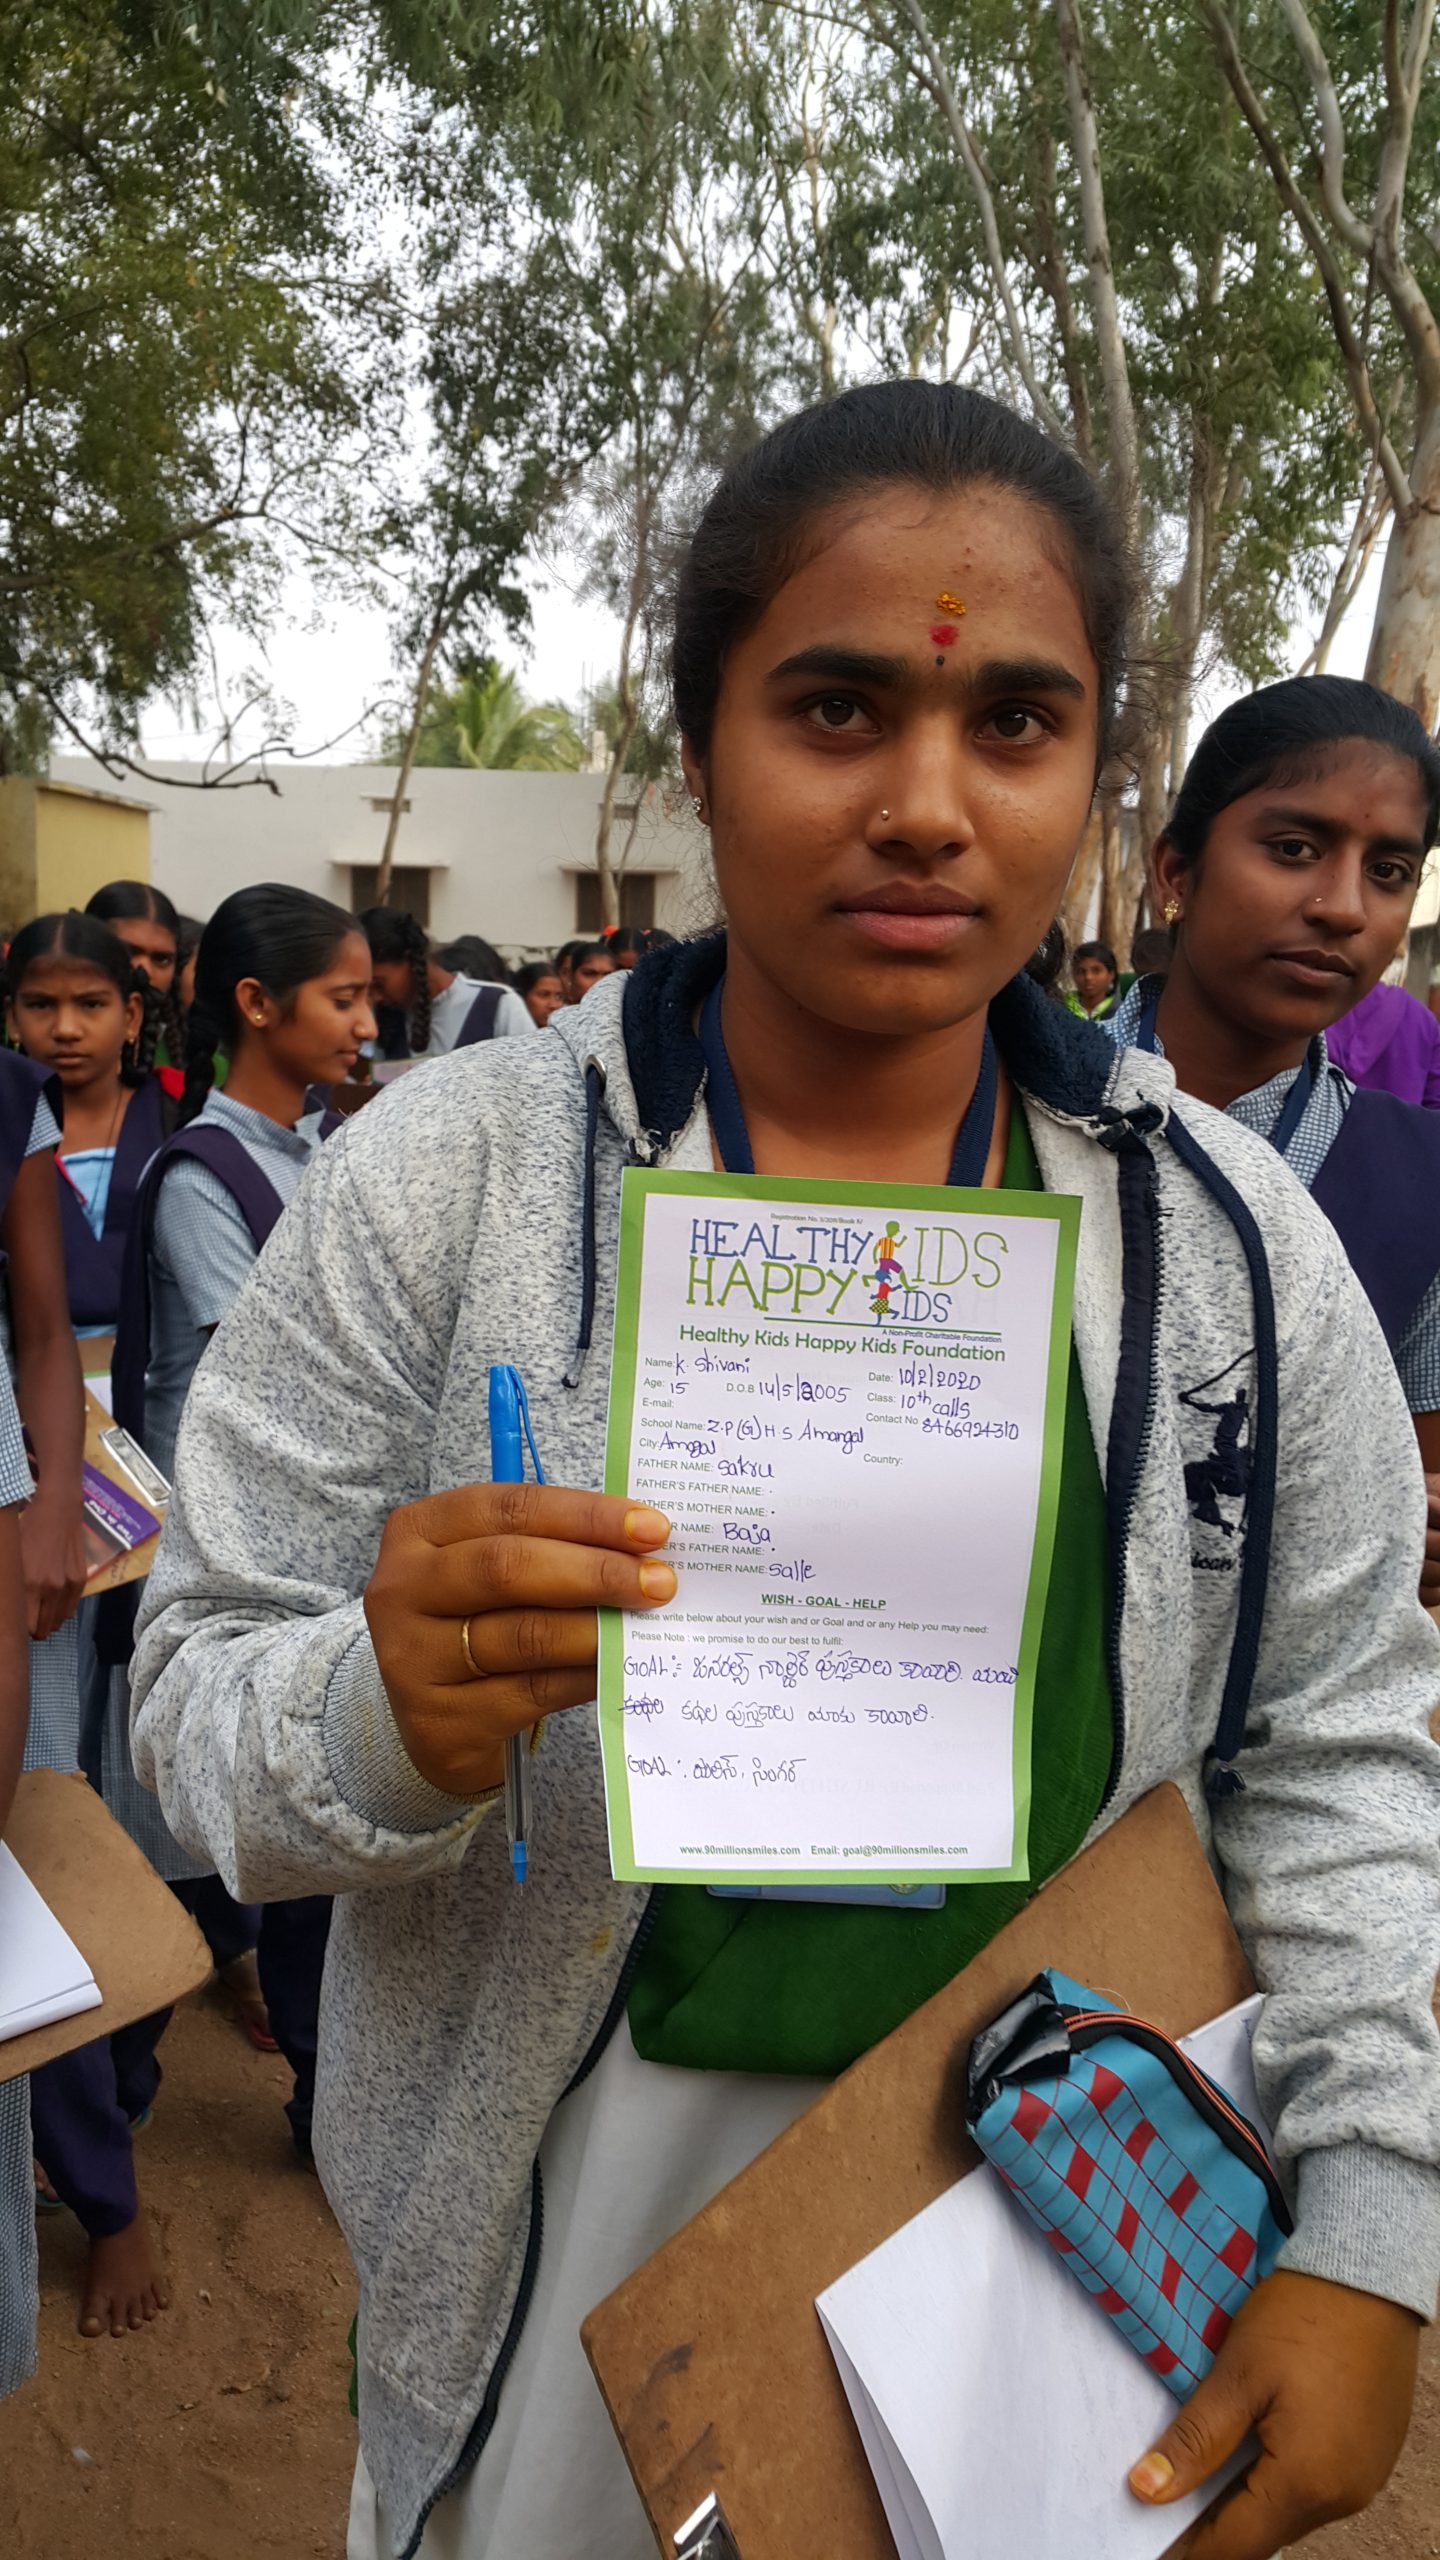 Registration No. 5/2011/Book IV
HEALTHY KIDS
HAPPY KIDS
A Non-Profit Charitable Foundation
Healthy Kids Happy Kids Foundation
Name: K. Shivani Date: 10/2/2020
Age: 15 D.O.B 14/5/2005 Class: 10th calls
E-mail: Contact No 8466924310
School Name: Z.P(G)H.S Amangal
City: Amagal Country:
FATHER NAME: Sakru
FATHER'S FATHER NAME:
FATHER'S MOTHER NAME:
R NAME: Baja
ER'S FATHER NAME:
ER'S MOTHER NAME: Salle
WISH - GOAL - HELP
Please write below about your wish and or Goal and or any Help you may need:
Please Note : we promise to do our best to fulfil:
GOAL:- జనరల్స్ పుస్తకాలు కావాలి.
కథల పుస్తకాలు మాకు కావాలి.
GOAL: పొలిస్, సింగర్
www.90millionsmiles.com Email: goal@90millionsmiles.com